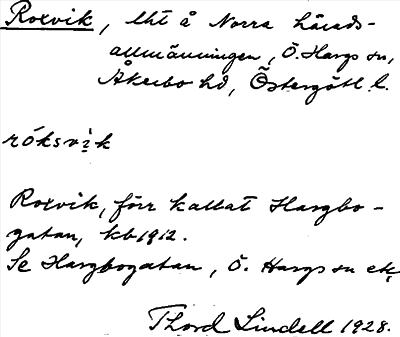 Roxvik, lht å Norra härads-
allmänningen, Ö. Hargs sn,
Åkerbo hd, Östergötl. l.
róksvìk
Roxvik, förr kallat Hargbo-
gatan, kb 1912.
Se Hargbogatan, Ö. Hargs sn etc,
Thord Lindell 1928.